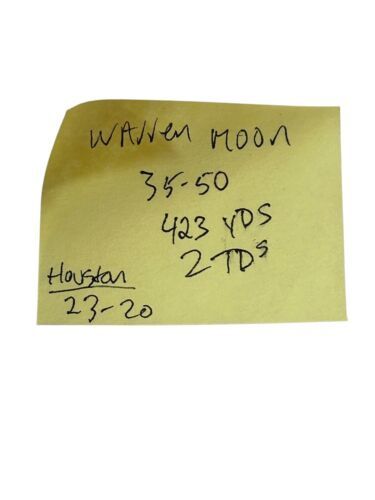 Warren Moon
35-50
423 YDS
2 TDs
Houston
23-20